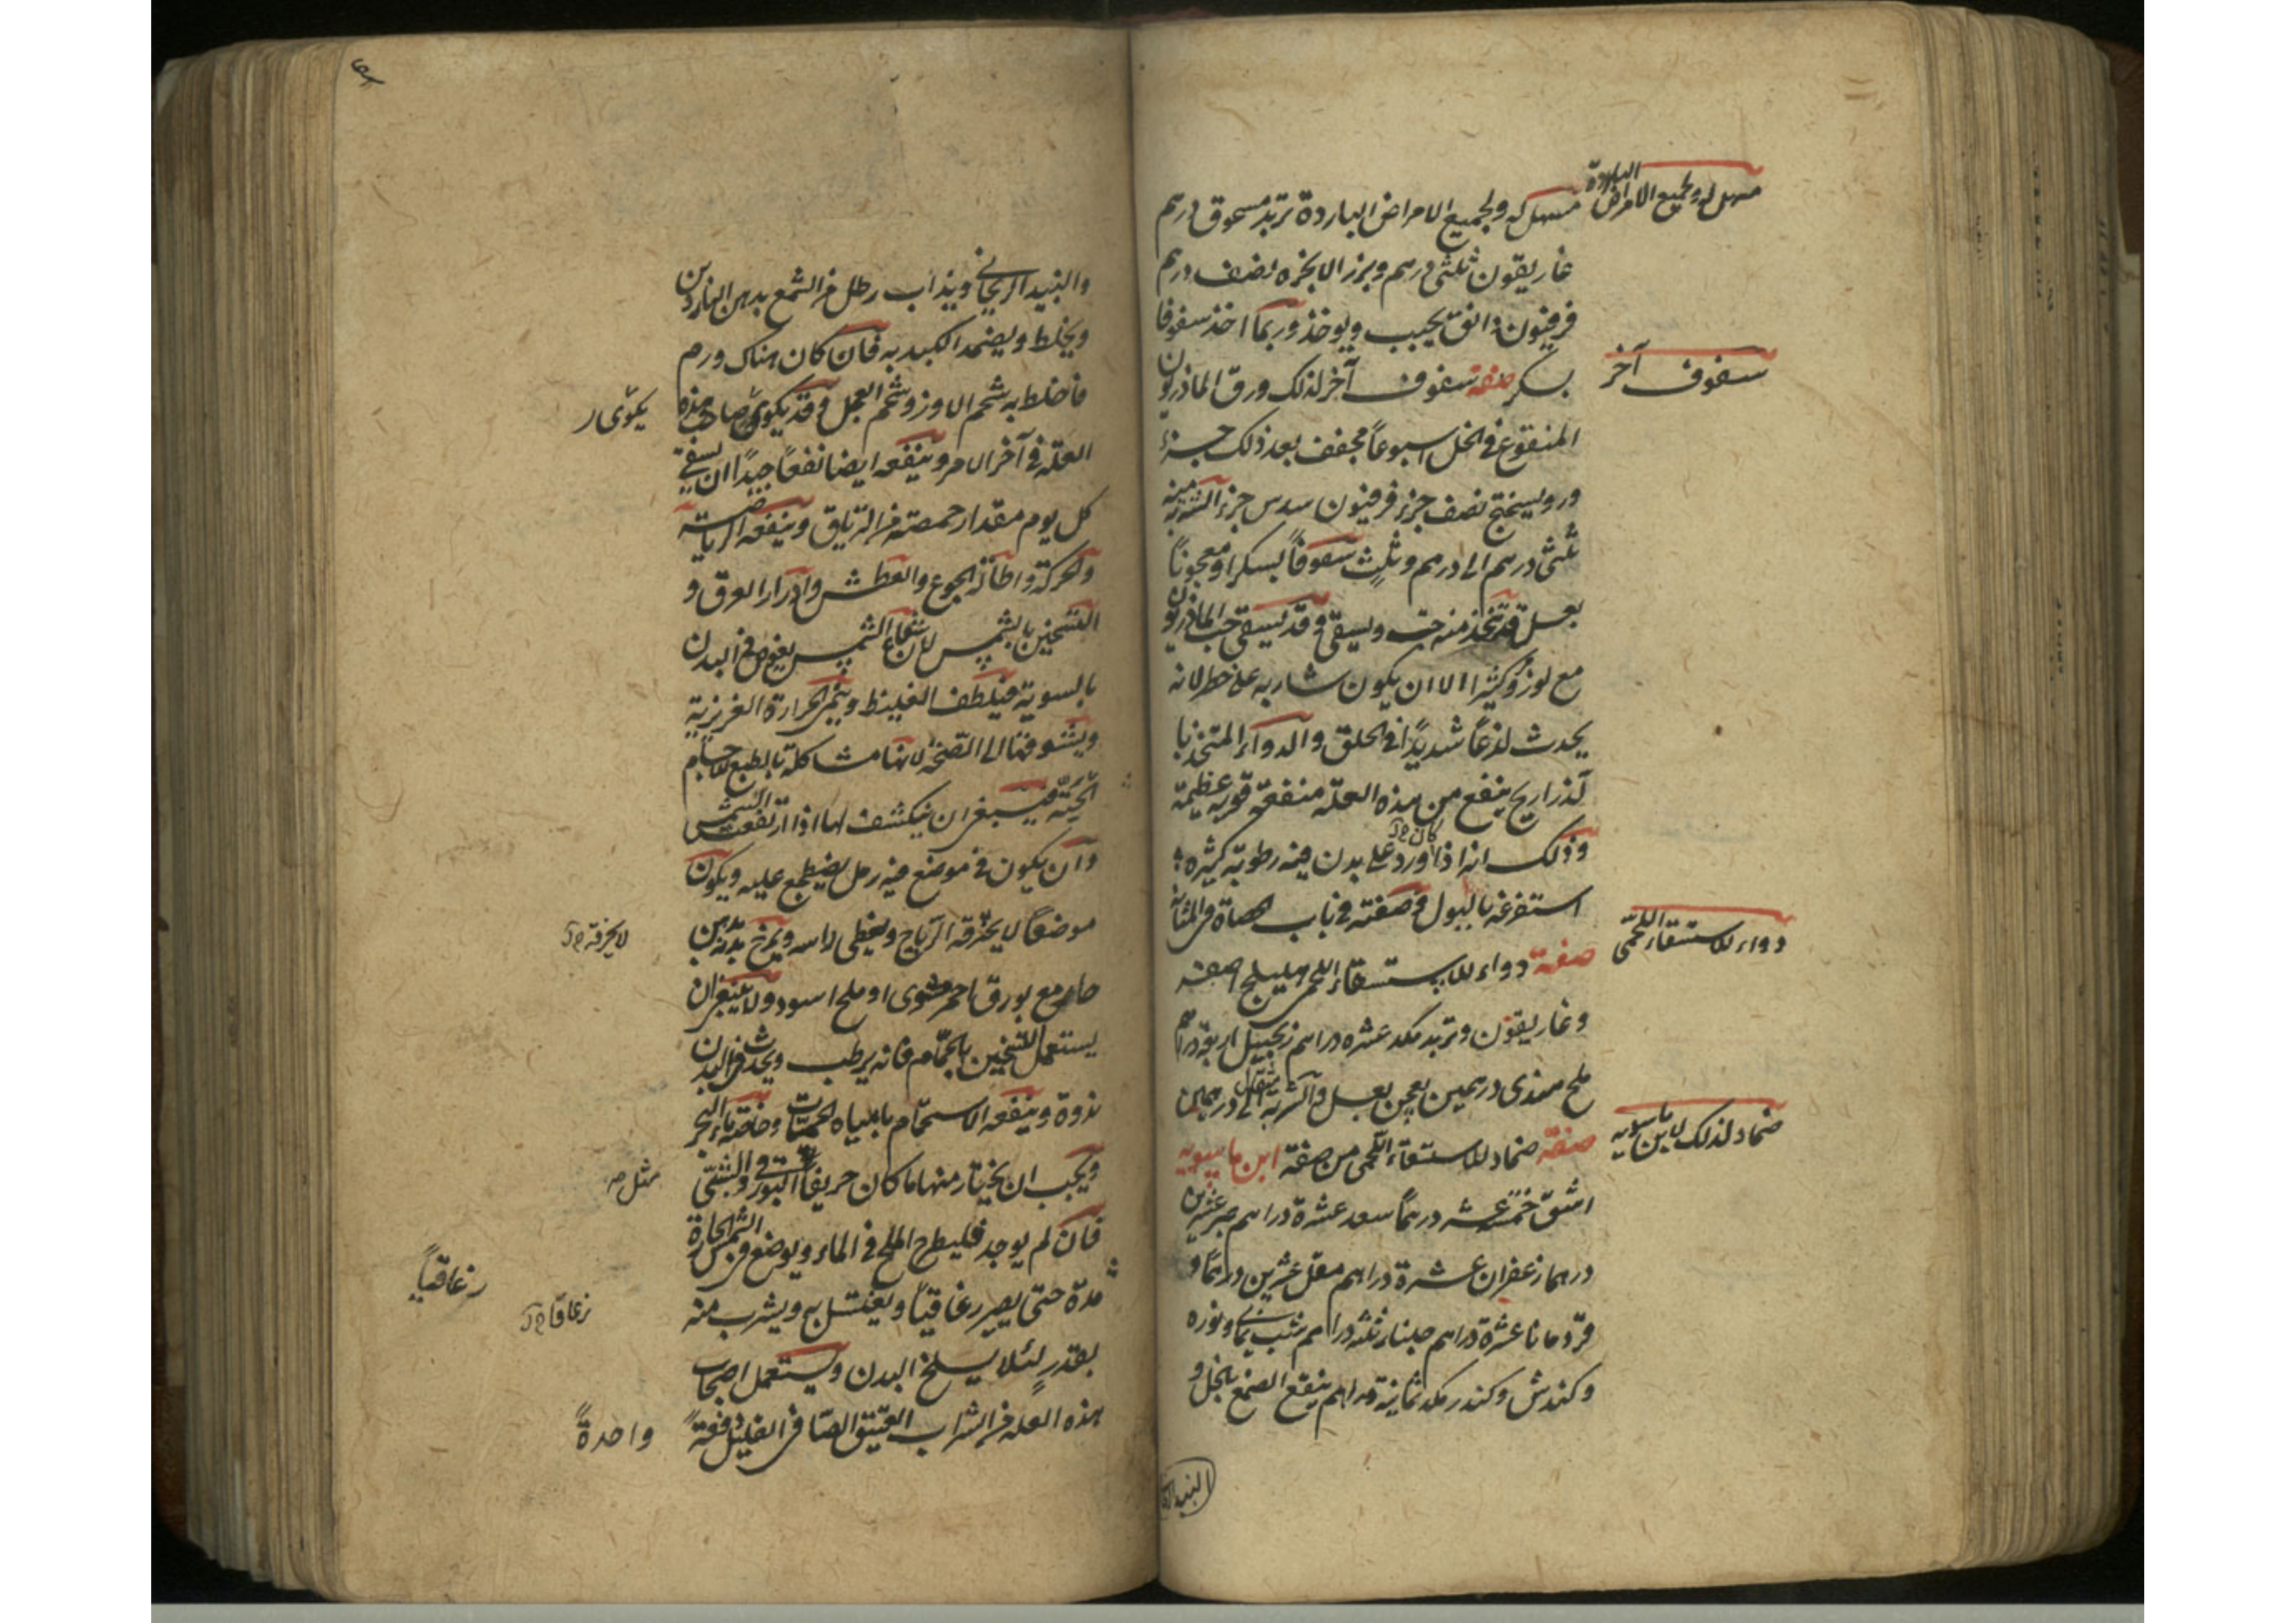 مسهل له ولجميع الامراض الباردة
مسهل له ولجميع الامراض الباردة تربد مسحوق درهم
غاريقون ثلثى درهم وبزر الانجره نصف درهم
فرفيون دانق يحبب ويوخذ وربما اخذ سفوفا
سفوف آخر
بسكر صفة سفوف آخر لذلك ورق الماذريون
المنقوع فى الخل اسبوعاً مجفف بعد ذلك جزء
وروسختج نصف جزء فرفيون سدس جزء الشربة منه
ثلثى درهم الى درهم وثلث سفوفاً بسكر او معجوناً
بعسل وقد يتخذ منه حب ويسقى وقد يسقى حب الماذريون
مع لوز وكثيرا الا ان يكون شاربه على خطر لانه
يحدث لذعاً شديداً فى الحلق والدواء المتخذ با
لذراريح ينفع من هذه العلة منفعة قوية عظيمة
وذلك انه اذا ورد على بدن فيه رطوبة كثيره
كان
استفرغه بالبول وصفته فى باب حصاة المثانة
دواء للاستسقاء اللحمى
صفة دواء للاستسقاء اللحمى هليلج اصفر
وغاريقون وتربد مكد عشره دراهم زنجبيل اربعة دراهم
ملح هندى درهمين يعجن بعسل والشربة مثقال الى درهمين
ضماد لذلك لابن ماسويه
صفة ضماد للاستسقاء اللحمى من صفة ابن ماسويه
اشق خمسة عشر درهماً سعد عشرة دراهم صبر عشرين
درهما زعفران عشرة دراهم مقل عشرين درهماً و
قردمانا عشرة دراهم جلنار ثلثه دراهم شب يمانى ونوره
وكندش وكندر مكد ثمانية دراهم ينقع الصمغ بالخل و
والنبيذ الريحانى ويذاب رطل من الشمع بدهن الناردين
ويخلط ويضمد الكبد به فان كان هناك ورم
فاخلط به شحم الاوز وشحم العجل وقد يكوى صاحب هذه
يكوى
العلة فى آخر الامر وينفعه ايضا نفعاً جيداً ان يسقى
كل يوم مقدار حمصة من الترياق وينفعه الرياضة
والحركة واطالة الجوع والعطش وادرار العرق و
التسخين بالشمس لان شعاع الشمس يغوص فى البدن
بالسوية فيلطف الغليظ وينمى الحرارة الغريزية
ويشوقها الى لانها مشاكلة بالطبع للاجسام
الحية فينبغى ان ينكشف لها اذا ارتفعت الشمس
وان يكون فى موضع فيه رمل يضطجع عليه ويكون
موضعاً لا يخترقه الرياح ويغطى راسه ويمرخ بدنه بدهن
لا يخرقه
حار مع بورق احمر مشوى او ملح اسود ولا ينبغى ان
يستعمل التسخين بالحمام فانه يرطب ويحدث فى البدن
نداوة وينفعه الاستحمام بالمياه الحميات وخاصة ماء البحر
ويجب ان يختار منها ما كان حريفاً والشبى
مثل
فان لم يوجد فليطرح الملح فى الماء ويوضع فى الشمس الحارة
مدة حتى يصير زعاقياً ويغتسل به ويشرب منه
زعاقياً
زعاقا
بقدر لئلا يسلخ البدن ويستعمل اصحاب
هذه العله من الشراب العتيق الصافى القليل دفعة
واحدةً